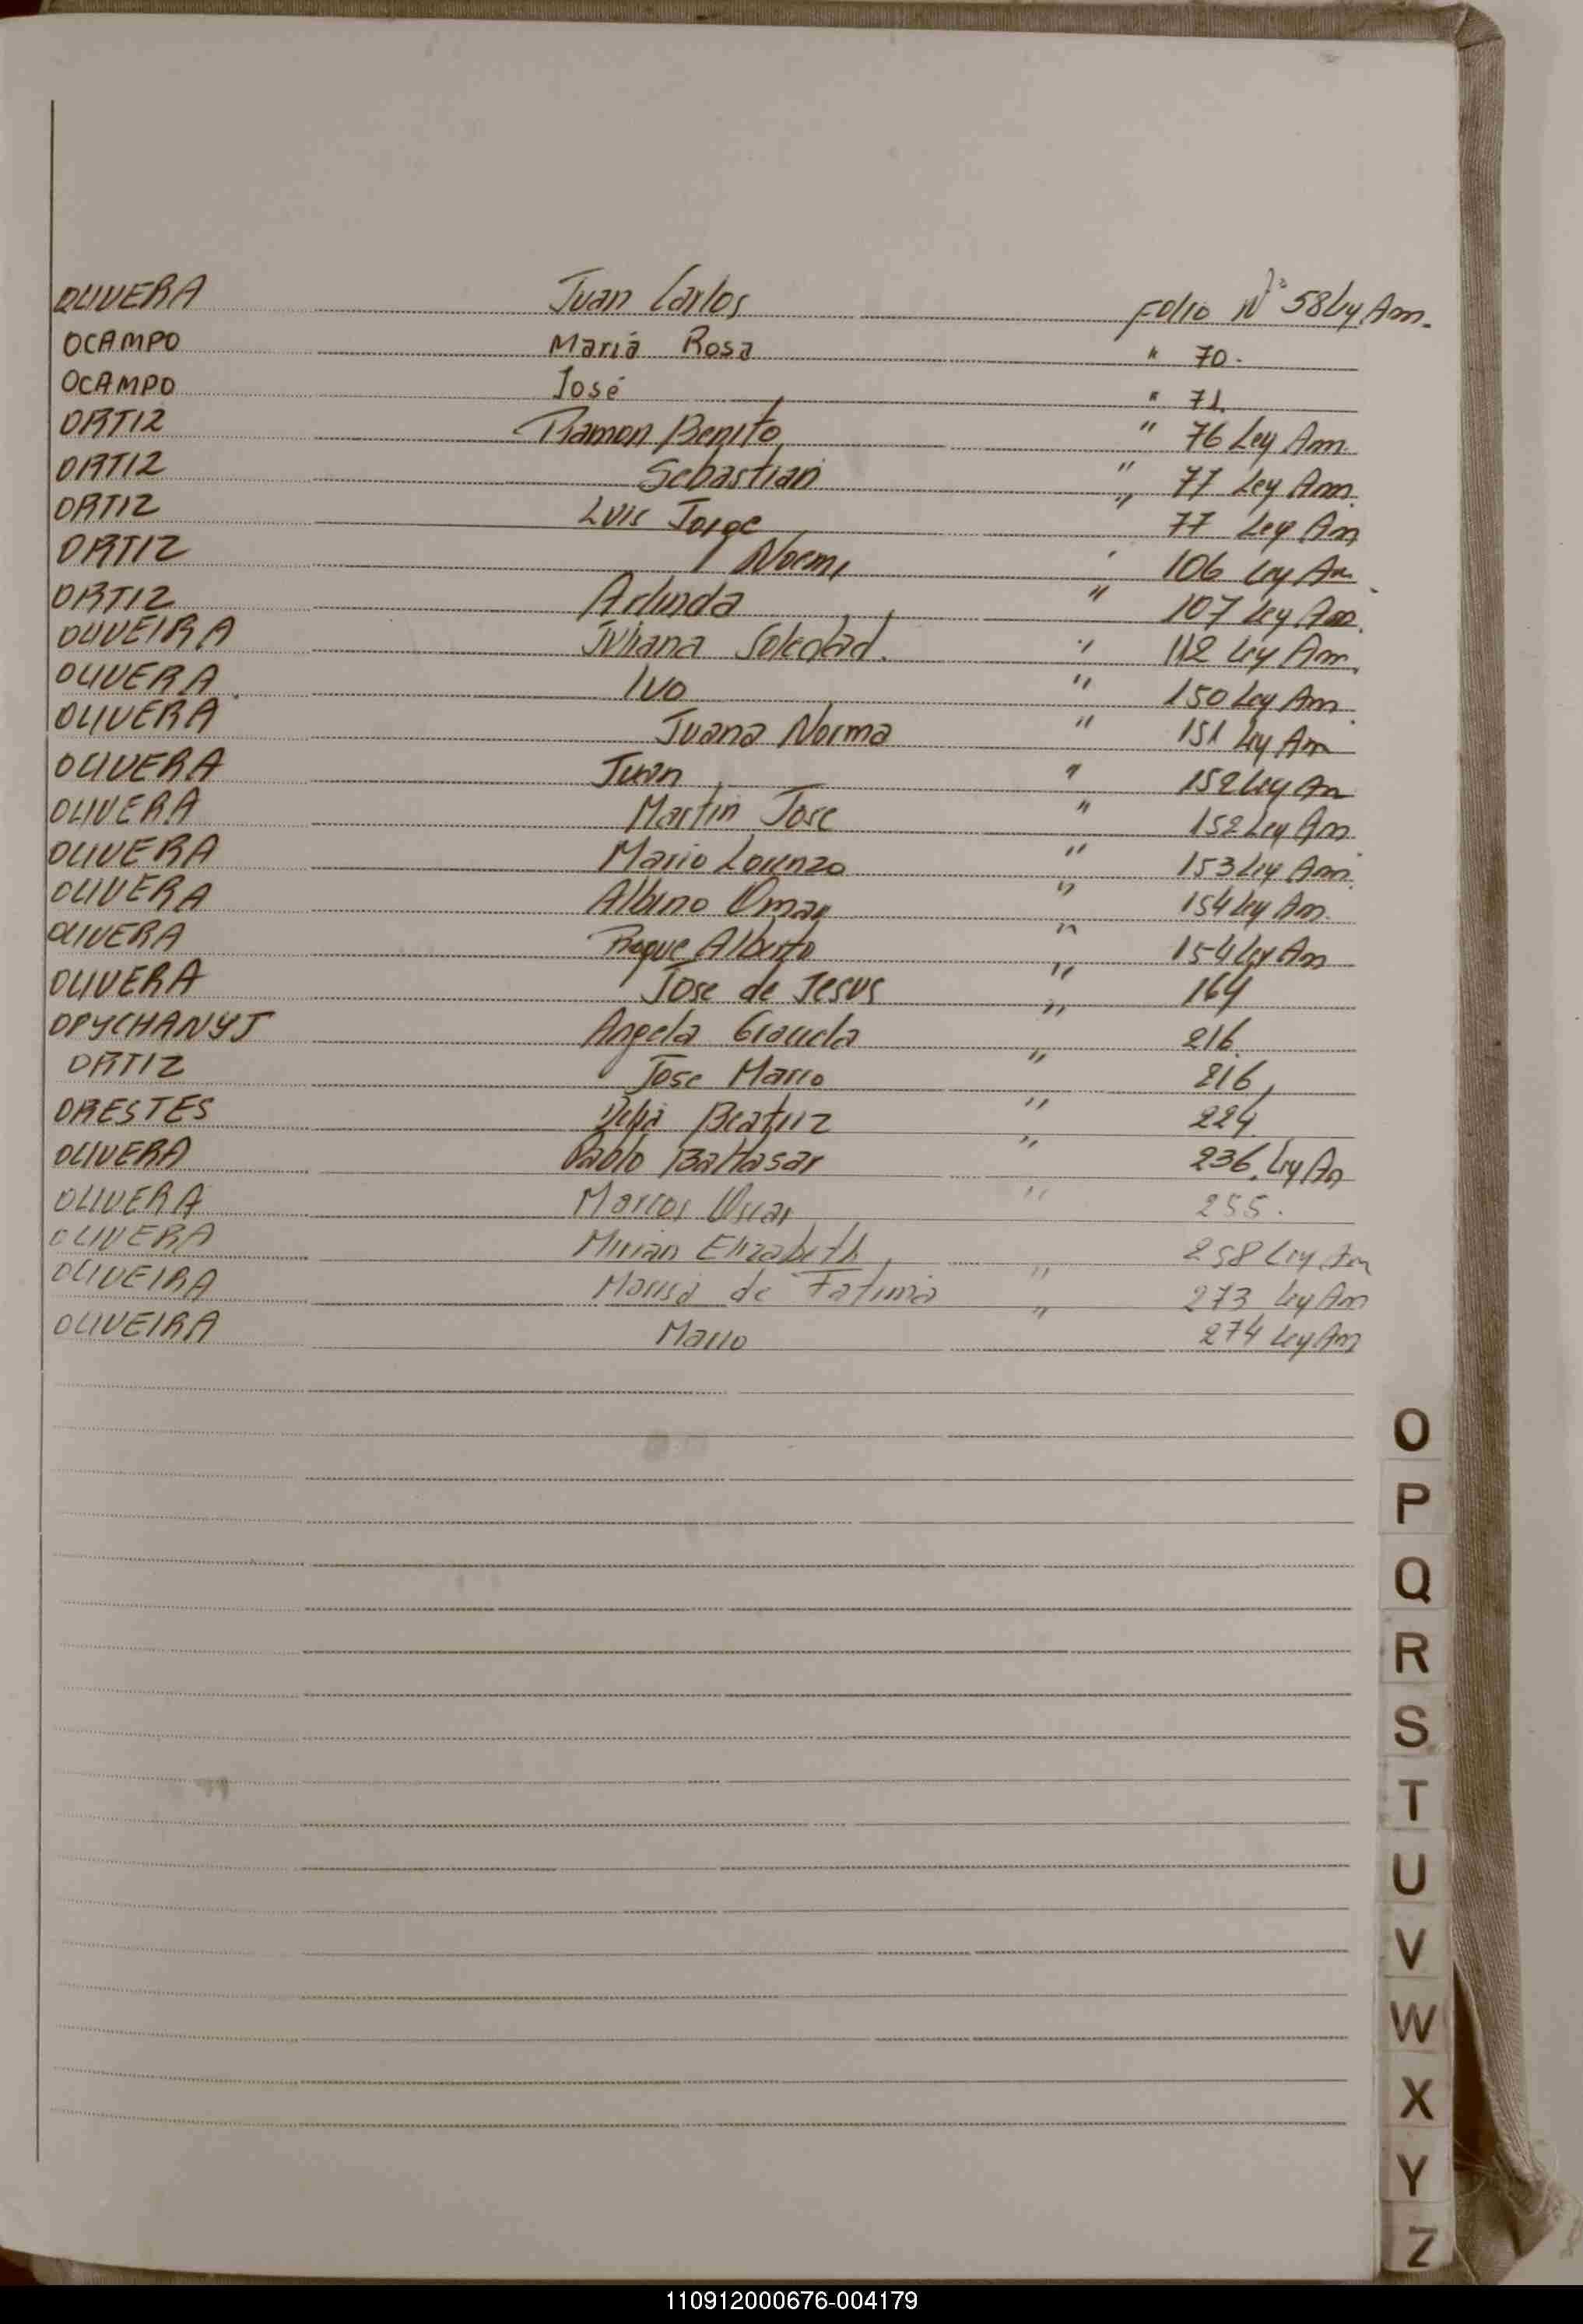 OLIVERA Juan Carlos Folio Nº 58 Ley Am.
OCAMPO Mariá Rosa " 70.
OCAMPO José " 71.
ORTIZ Ramon Benito " 76 Ley Am.
ORTIZ Sebastian " 77 Ley Am.
ORTIZ Luis Jorge " 77 Ley Am
ORTIZ Noemi " 106 Ley Am.
ORTIZ Arlinda " 107 Ley Am.
OLIVEIRA Juliana Soledad. " 112 Ley Am.
OLIVERA. Ivo " 150 Ley Am.
OLIVERA Juana Norma " 151 Ley Am
OLIVERA Juan " 152 Ley Am
OLIVERA Martin Jose " 152 Ley Am.
OLIVERA Mario Lorenzo " 153 Ley Am.
OLIVERA Albino Omar " 154 Ley Am.
OLIVERA Roque Alberto " 154 Ley Am
OLIVERA Jose de Jesus " 164
OPYCHANYJ Angela " 216.
ORTIZ Jose Mario " 216,
ORESTES Delia Beatriz " 224.
OLIVERA Pablo Baltasar " 236. Ley Am
OLIVERA Marcos Oscar " 255.
OLIVERA Mirian Elizabeth 258 Ley Am
OLIVEIRA Marisa de Fatima " 273 Ley Am
OLIVEIRA Mario " 274 Ley Am
O
P
Q
R
S
T
U
V
W
X
Y
Z
110912000676-004179